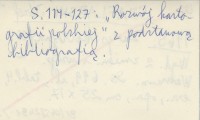 S. 114-127: „Rozwój karto-
grafii polskiej" z podstawową
bibliografią.